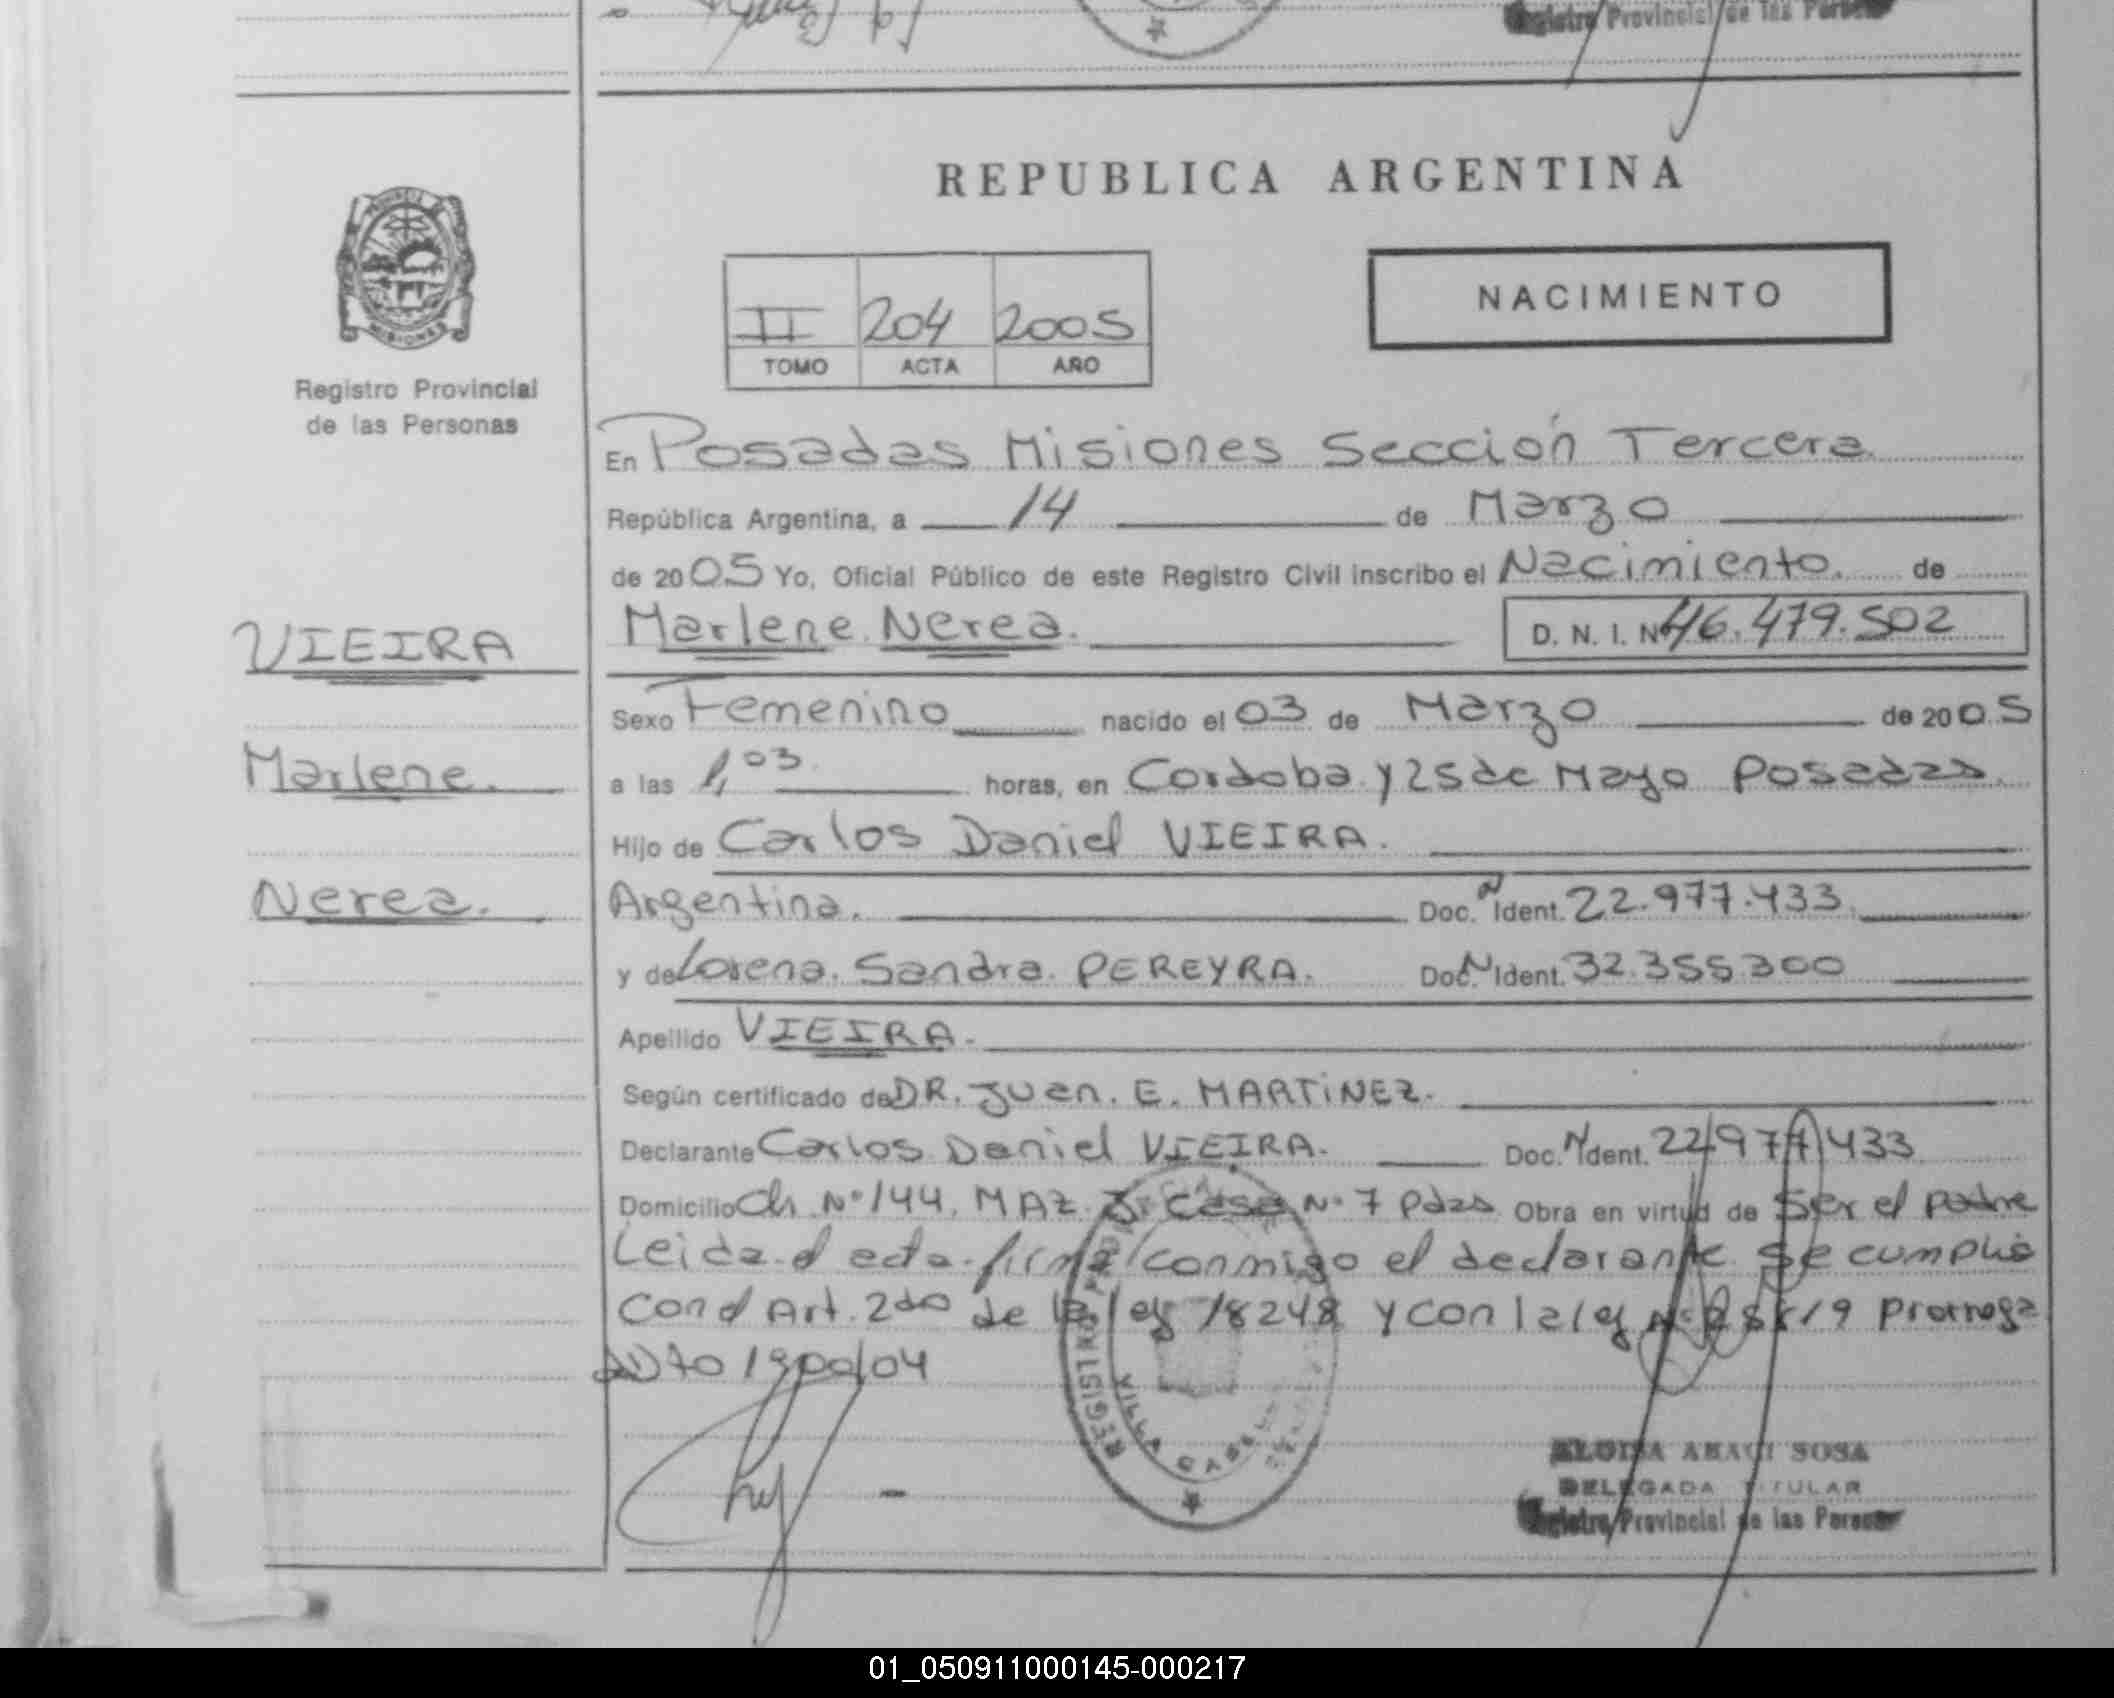 Registro Provincial de las Personas
REPUBLICA ARGENTINA
PROVINCIA DE
MISIONES
Registro Provincial
de las Personas
II 204 2005
TOMO ACTA AÑO
NACIMIENTO
En Posadas Misiones Sección Tercera
República Argentina, a 14 de Marzo
de 2005 Yo, Oficial Público de este Registro Civil inscribo el Nacimiento. de
VIEIRA
Marlene Nerea.
D. N. I. Nº 46.479.502
Sexo Femenino nacido el 03 de Marzo de 2005
Marlene.
a las 1,03 horas, en Cordoba y 25 de Mayo Posadas.
Hijo de Carlos Daniel VIEIRA.
Nerea.
Argentina. Doc. Ident. 22.977.433
y de Lorena. Sandra. PEREYRA. Doc. Ident. 32.355.300
Apellido VIEIRA.
Según certificado de DR. Juan. E. MARTINEZ.
Declarante Carlos Daniel VIEIRA. Doc. Ident. 22.977.433
Domicilio Ch. Nº 144. MAZ. 3. Casa Nº 7 Pdas Obra en virtud de Ser el padre
Leida el acta firma conmigo el declarante Se cumplió
con el Art. 2do de la ley 18248 y con la ley Nº 25819 Prorroga
Dto 1900/04
REGISTRO PROVINCIAL
VILLA CABELLO
ELOISA ABACI SOSA
DELEGADA TITULAR
Registro Provincial de las Personas
01_050911000145-000217